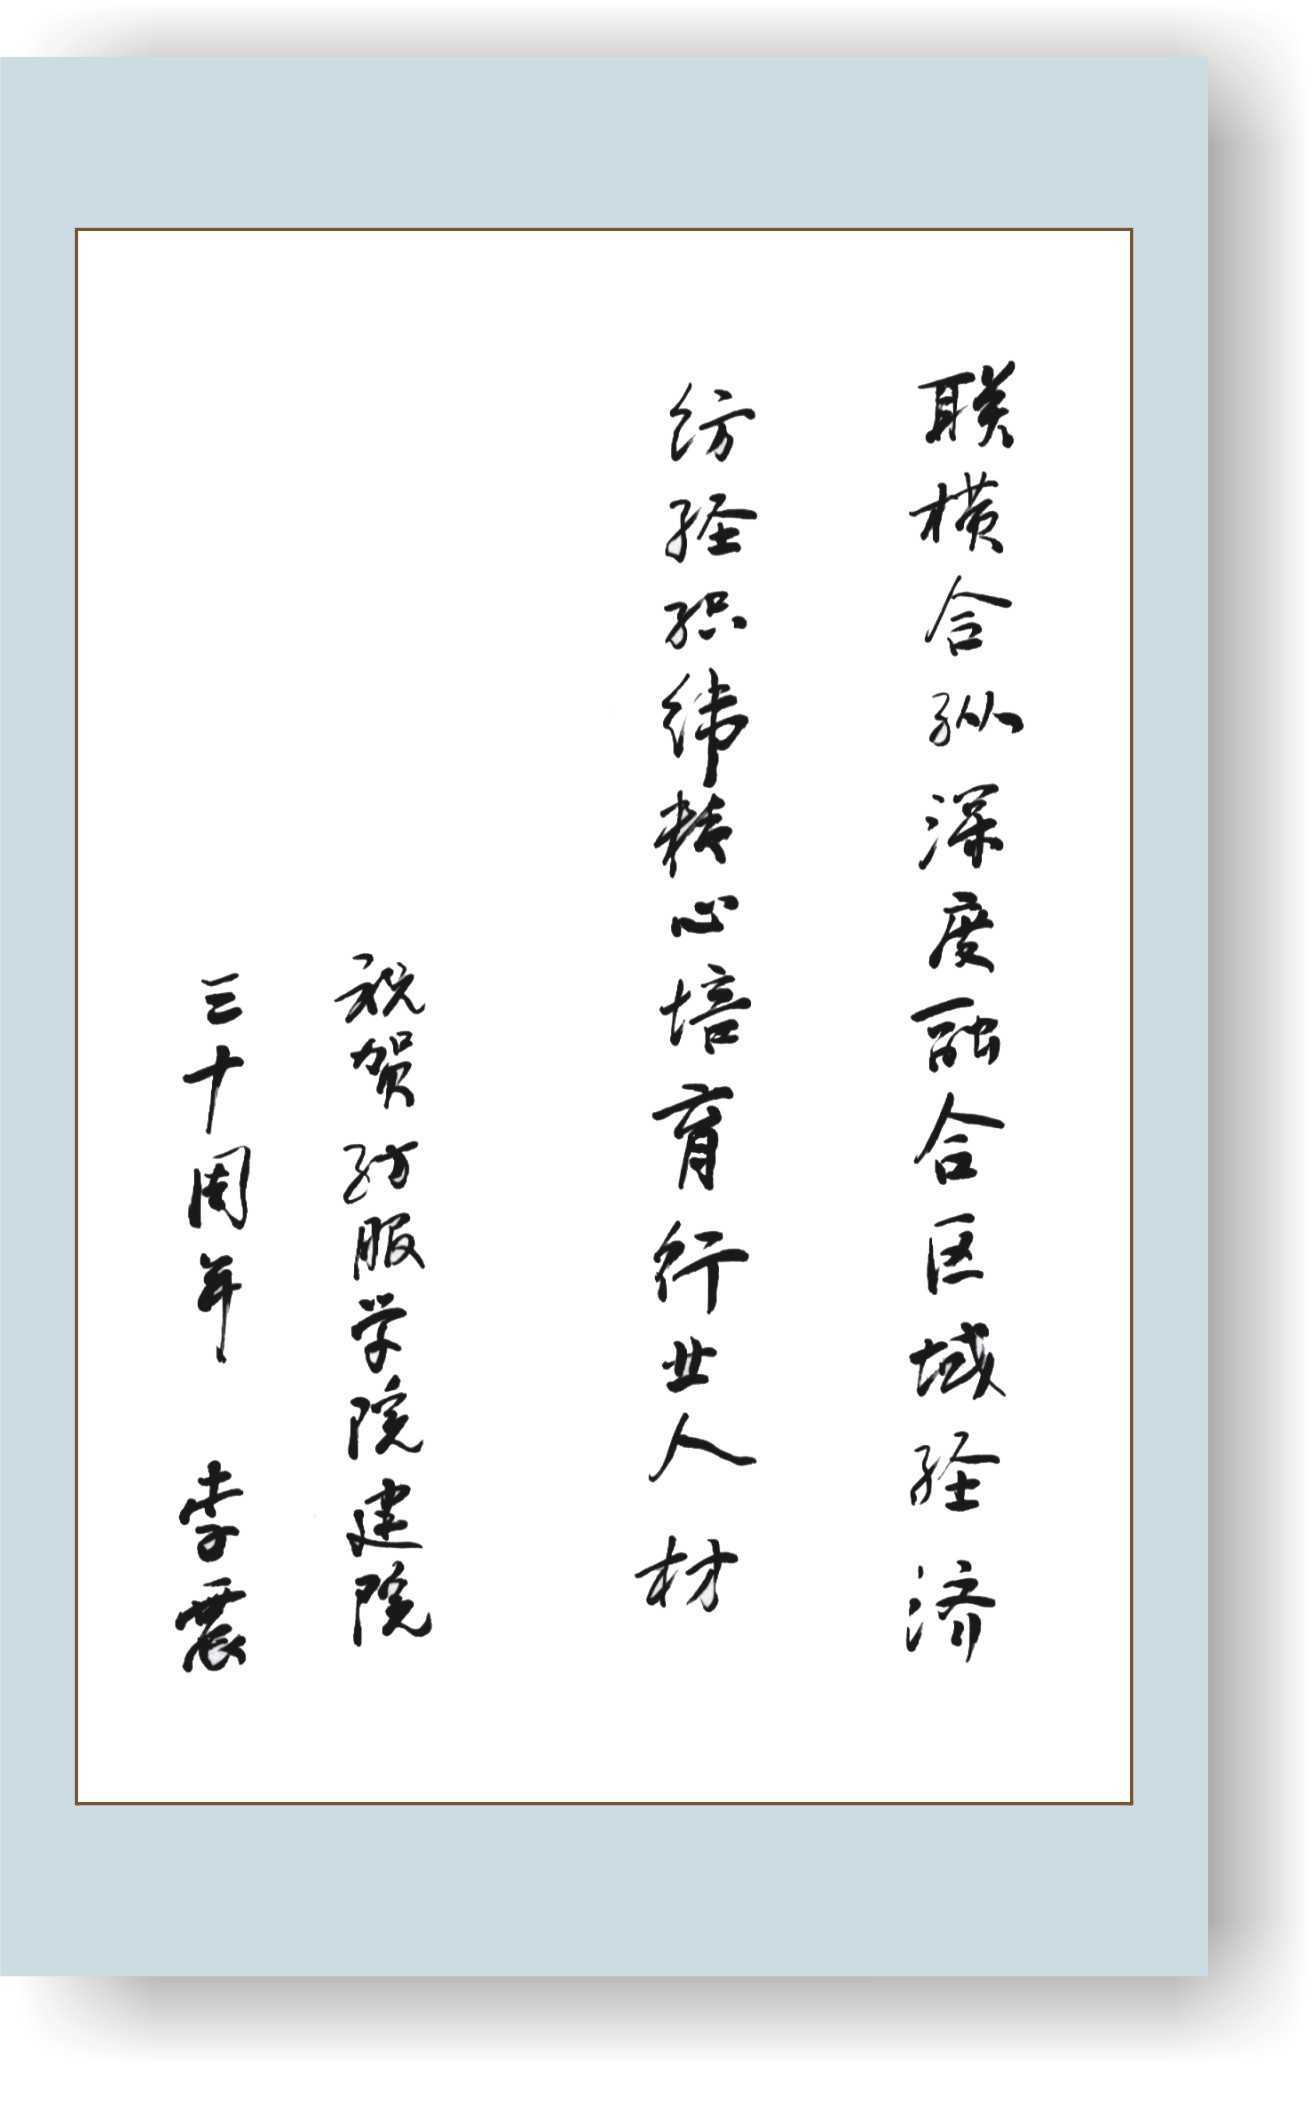 联横合纵深度融合区域经济
纺经织纬精心培育行业人材
祝贺纺服学院建院
三十周年 李震